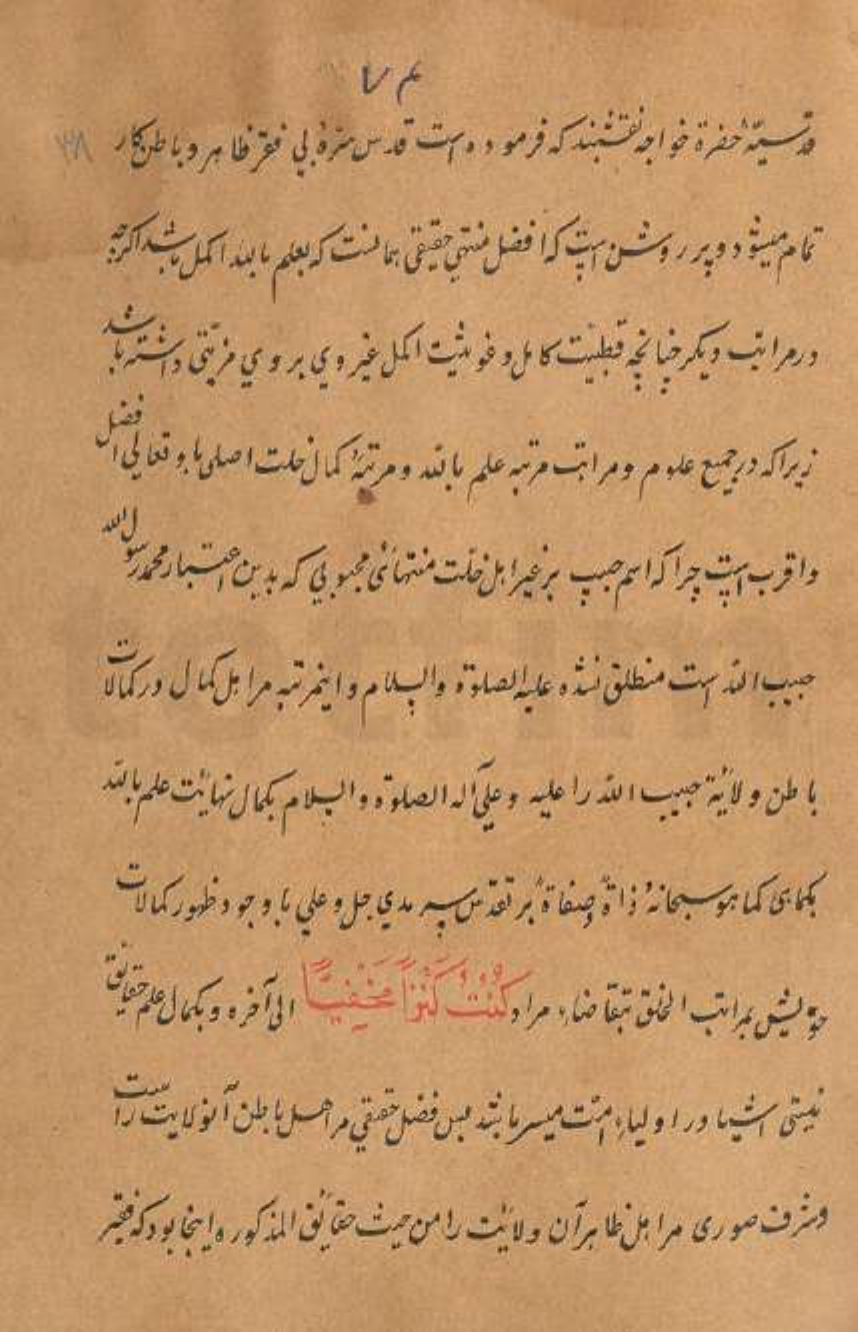 ۷۴
۳۸
قدسیهٔ حضرة خواجه نقشبند که فرموده است قدس سره بی فقر ظاهر و باطن کار
تمام میشود و پر روشن است که افضل منتهی حقیقی همانست که بعلم بالله اکمل باشد اکرچه
در مراتب دیکر چنانچه قطبیت کامل و غوثیت اکمل غیر وی بر وی مزیتی داشته باشد
زیرا که در جمیع علوم و مراتب مرتبه علم بالله و مرتبهٔ کمال خلت اصلی باو تعالی افضل
و اقرب است چرا که اسم حبیب بر غیر اهل خلت منتهائی محبوبی که بدین اعتبار محمد رسول الله
حبیب الله است منطلق نشده علیه الصلوة والسلام و اینمرتبه مر اهل کمال در کمالات
باطن ولایة حبیب الله را علیه و علی آله الصلوة والسلام بکمال نهائت علم بالله
بکماهی کما هو سبحانه ذاةً صفاةً بر تقدس سرمدی جل و علی با وجود ظهور کمالات
خویش بمراتب الخلق بتقاضاء مراد كُنْتُ كَنْزاً مَخْفِيّاً الی آخره و بکمال علم حقائق
نیستی اشیا در اولیاء امت میسر باشد پس فضل حقیقی مر اهل باطن آنولایت راست
و شرف صوری مر اهل ظاهر آن ولائت را من حیث حقائق المذکوره اینجا بود که فقیر